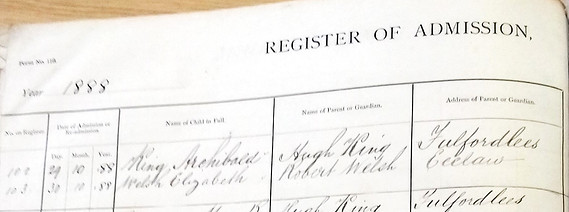 REGISTER OF ADMISSION.
Form No. 11B.
Year 1888
No. on Register. Date of Admission or Re-admission Name of Child in Full. Name of Parent or Guardian. Address of Parent or Guardian.
Day. Month. Year.
102 29 10 88 King, Archibald Hugh King Fulfordlees
103 30 10 88 Welsh Elizabeth Robert Welsh Ecclaw
Hugh King Fulfordlees